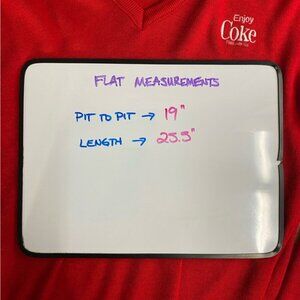 Enjoy
Coke
FLAT MEASUREMENTS
PIT TO PIT → 19"
LENGTH → 25.5"